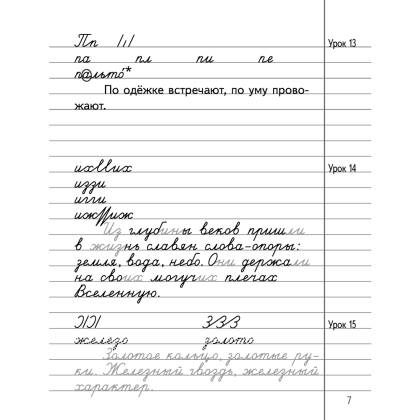 Пп /,/ Урок 13
па пл пи пе
п@льто́*
По одёжке встречают, по уму прово-
жают.
Урок 14
иззи
игги
Из глубины веков пришли
в жизнь славян слова-опоры:
земля, вода, небо. Они держали
на своих могучих плечах
Вселенную.
ЗЗЗ Урок 15
железо золото
Золотое кольцо, золотые ру-
ки. Железный гвоздь, железный
характер.
7